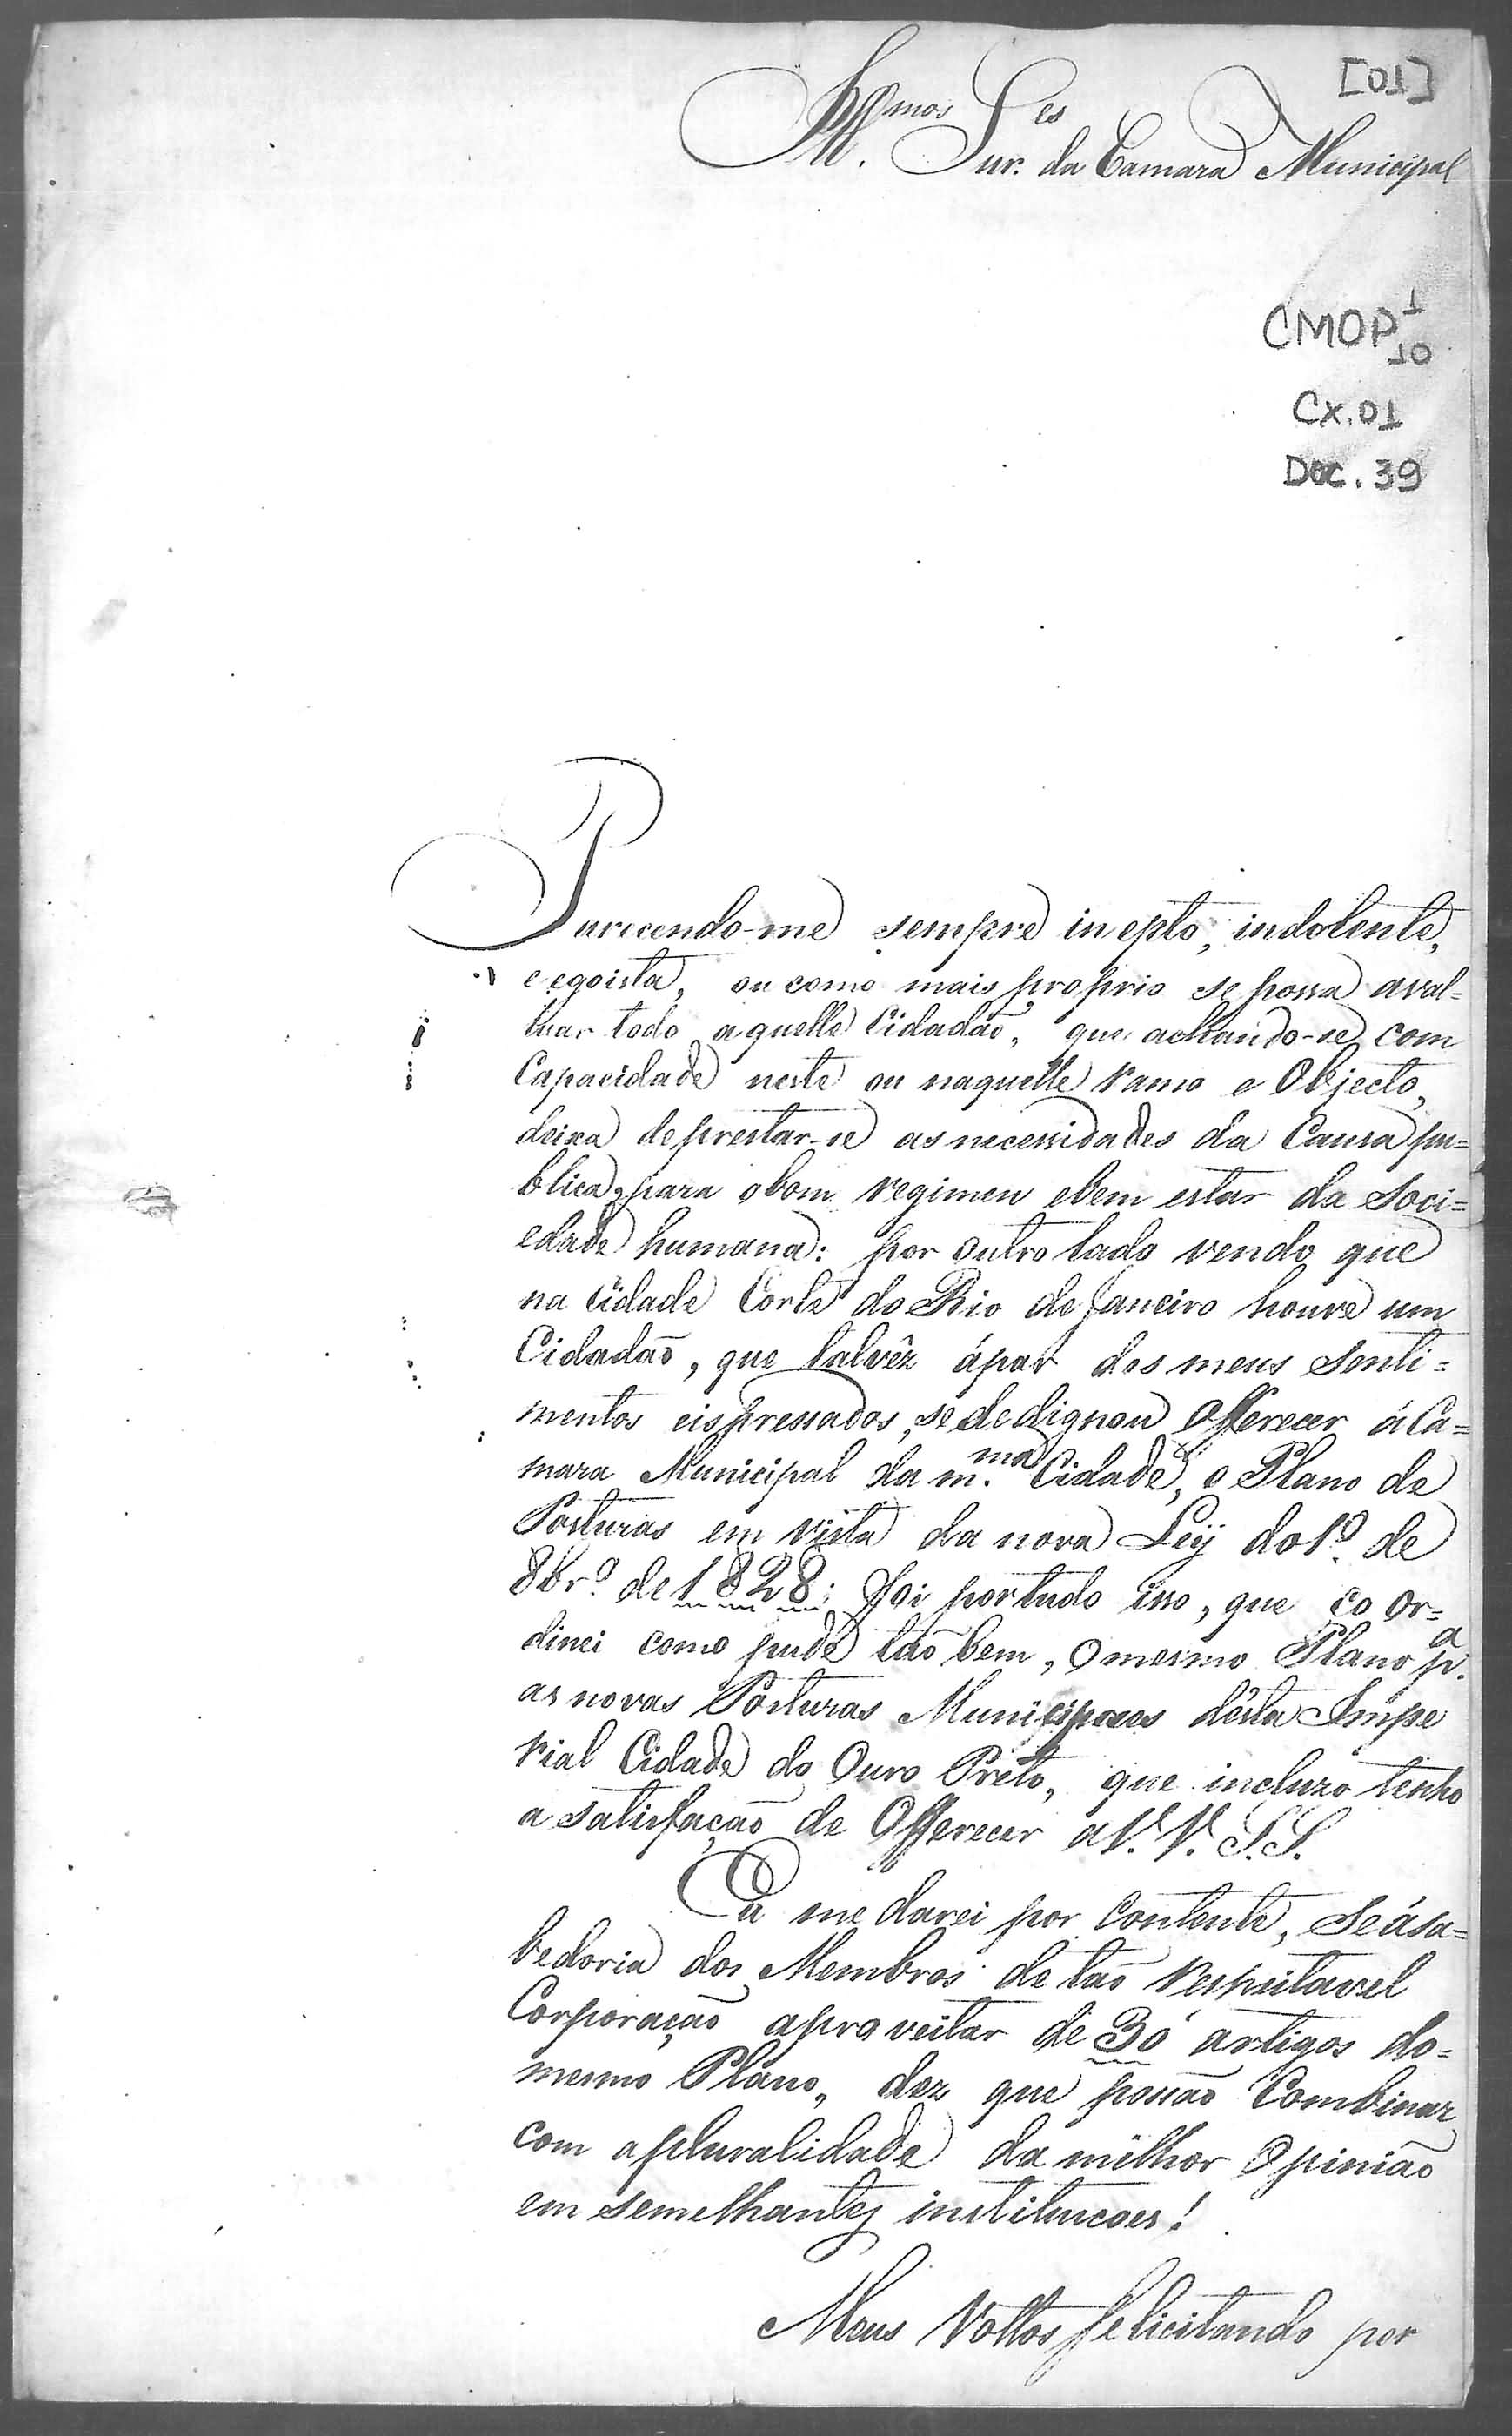 [01]
Ill.mos Snr.es da Camara Municipal
CMOP 1
10
Cx. 01
Doc. 39
Parecendo-me sempre inepto, indolente,
e egoista, ou como mais proprio se possa aval=
luar todo aquelle Cidadão, que achando-se com
Capacidade neste ou naquelle ramo e Objecto,
deixa de prestar-se as necessidades da Causa pu=
blica, para o bom regimen e bem estar da Soci=
edade humana: por outro lado vendo que
na Cidade Corte do Rio de Janeiro houve um
Cidadão, que talvêz ápar dos meus Senti=
mentos eispressados, se dedignou Offerecer á Ca=
mara Municipal da m.ma Cidade, o Plano de
Posturas em vista da nova Ley do 1.º de
8br.º de 1828: foi por tudo isso, que co or=
dinei como pude tão bem, o mesmo Plano p.a
as novas Posturas Municipaes désta Impe
rial Cidade do Ouro Preto, que incluzo tenho
a satisfação de Offerecer a V. V. S. S.
Eu me darei por Contente, se ása=
bedoria dos Membros de tão respeitavel
Corporação aproveitar de 30 artigos do=
mesmo Plano, dez que possão Combinar
com a pluralidade da milhor Opinião
em semelhantes instituicoes!
Meus Vottos felicitando por